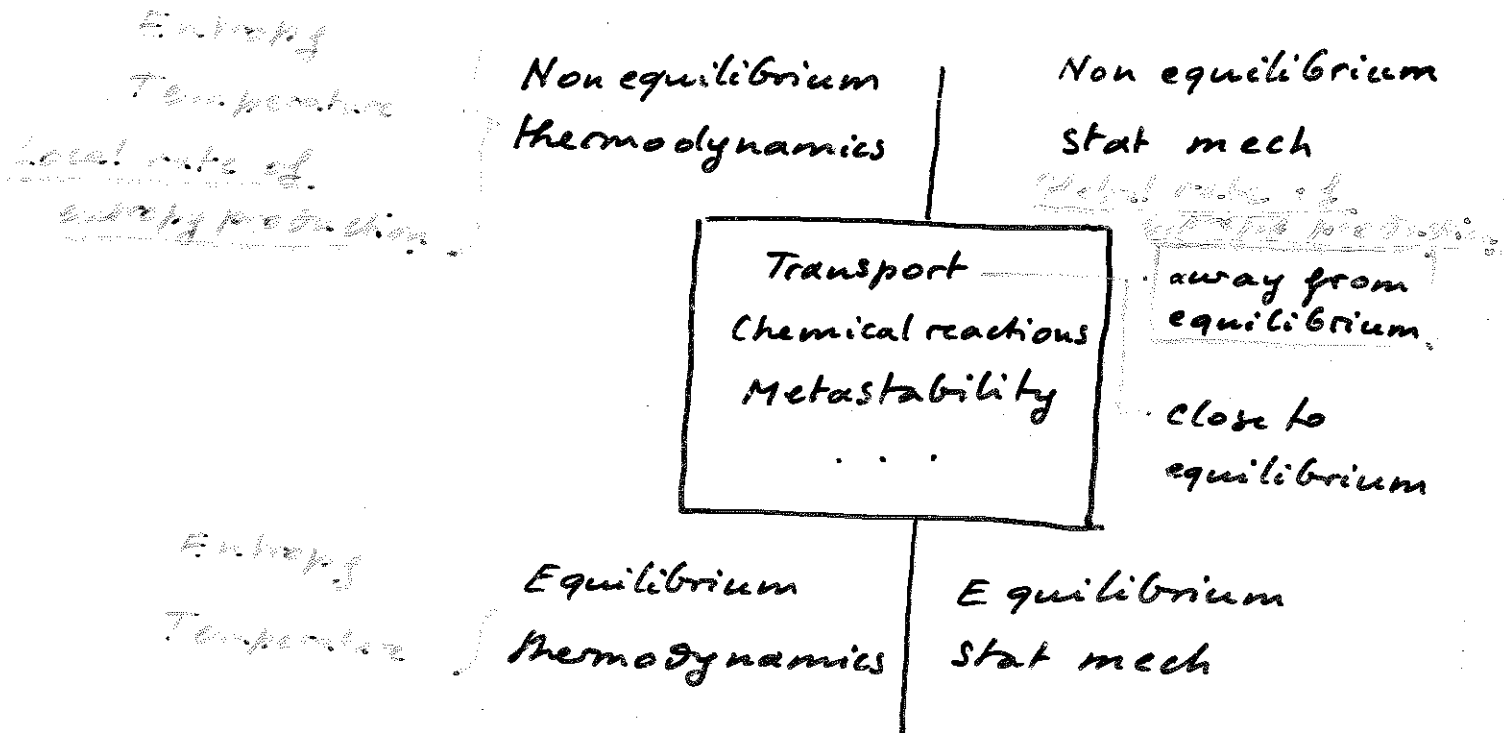 Entropy
Temperature
Local rate of
entropy production
Non equilibrium
thermodynamics
Non equilibrium
stat mech
rate of
Transport
Chemical reactions
Metastability
. . .
away from
equilibrium
close to
equilibrium
Entropy
Temperature
Equilibrium
thermodynamics
Equilibrium
stat mech